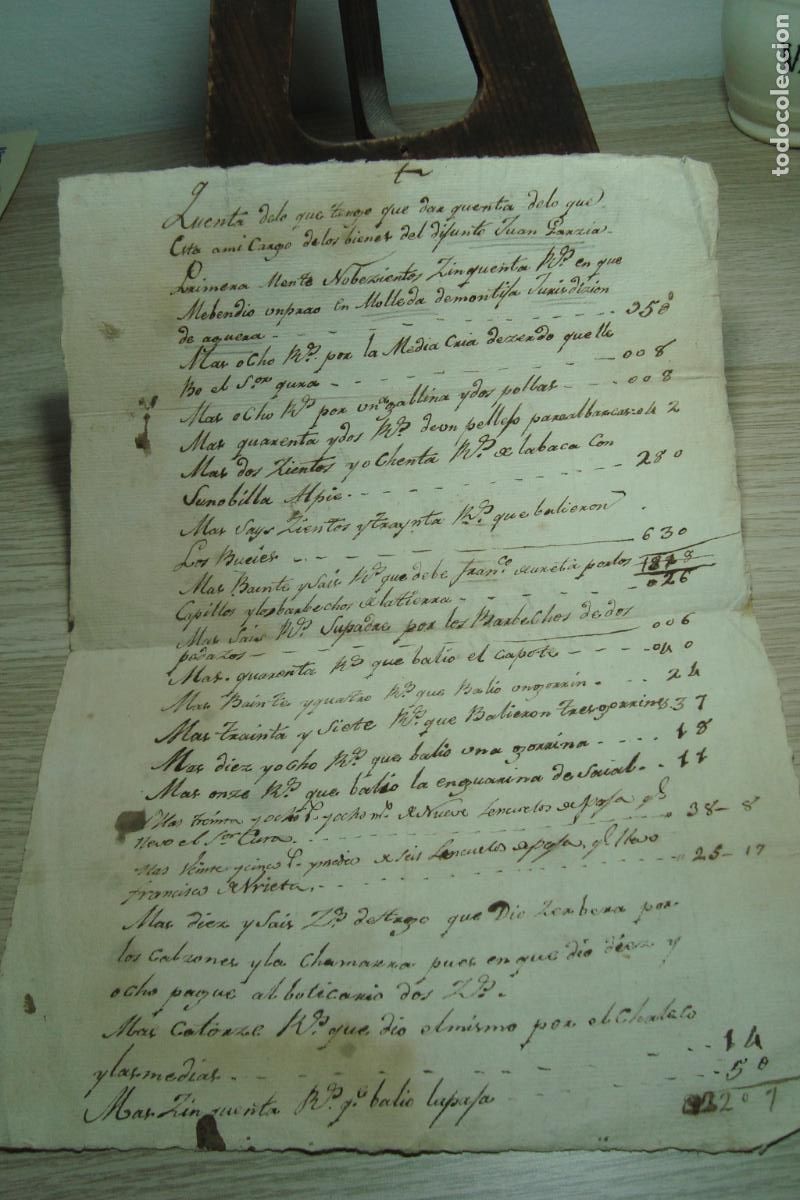 Quenta delo que tengo que dar quenta delo que
Esta ami Cargo de los bienes del difunto Juan Garzia
Primera Mente Nobezientos Zinquenta Rs. en que
Mebendio unprao en Molleda demontija Jurisdizion
de aguera - - - - 950
Mas ocho Rs. por la Media Cria dezerdo quelle
Bo el Sor qura - - - 008
Mas ocho Rs. por una gallina ydos pollas - - 008
Mas quarenta ydos Rs. deun pellejo paraalbarcas - 042
Mas dos Zientos yochenta Rs. de labaca Con
Sunobilla Alpie - - - 280
Mas Says Zientos ytraynta Rs. que balieron
Los Bueies - - - 630
Mas Bainte y Sais Rs. que debe Franco de uretia porlos 1818
Capillos ylosbarbechos de latierra - - - 026
Mas Sais Rs. Supadre por los Barbechos de dos
pedazos - - - 006
Mas quarenta Rs. que balio el capote - - - 040
Mas Bainte yquatro Rs. que Balio ungorrin - - 24
Mas trainta y Siete Rs. que Balieron tres gorrines 37
Mas diez yocho Rs. que balio una gorrina - - - 18
Mas onze Rs. que balio la enguarina de Saial - - 11
Mas treinta yocho rs. yocho ms. de Nueve Lenzuelos de paja qe
llevo el Sor Cura - - - 38-8
Mas Veinte ycinco rs. ymedio de seis Lenzuelos de paja, qe llevo
francisco de Urieta - - - 25-17
Mas diez y Sais Zs. detrigo que Dio Zerbera por
los Calzones yla Chamarra pues en que dio diez y
ocho pague al boticario dos Zs.
Mas Catorze Rs. que dio elmismo por el Chaleco
ylasmedias - - - 14
Mas Zinquenta Rs. qe balio lapaja - - - 50
2207
todocoleccion